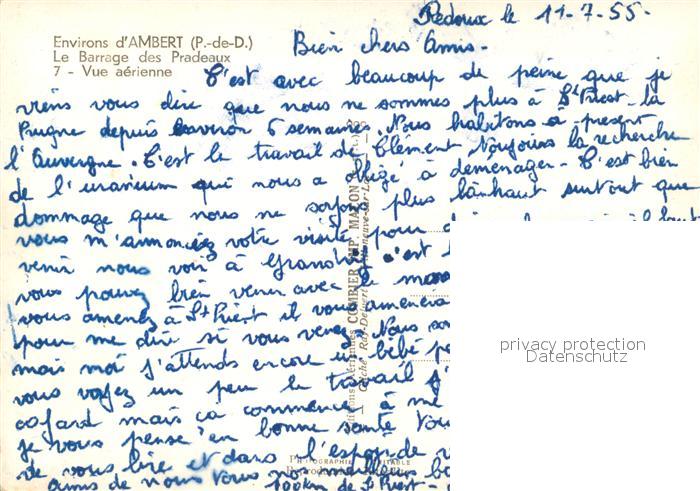 Redoux le 11-7-55-
Environs d'AMBERT (P.-de-D.)
Le Barrage des Pradeaux
7 - Vue aérienne
Bien chers Amis -
C'est avec beaucoup de peine que je
viens vous dire que nous ne sommes plus à St Priest-la
Prugne depuis environ 6 semaines. Nous habitons à-présent
l'Auvergne. C'est le travail de Clément. Toujours la recherche
de l'uranium qui nous a obligé à déménager - C'est bien
dommage que nous ne soyons plus lànhaut surtout que
vous m'annonciez votre visite pour
venir nous voir à c'est
vous pouvez bien venir avec le
vous amener à St Priest il vous amènera
pour me dire si vous venez. Nous
mais moi j'attends encore un bébé
vous voyez un peu le travail j'
cafard mais ça commence à me
je vous pense en bonne santé
de vous lire et dans l'espoir de
amis de nous tous nos meilleurs
100km de St Priest -
COMBIER IMP. MACON
privacy protection
Datenschutz